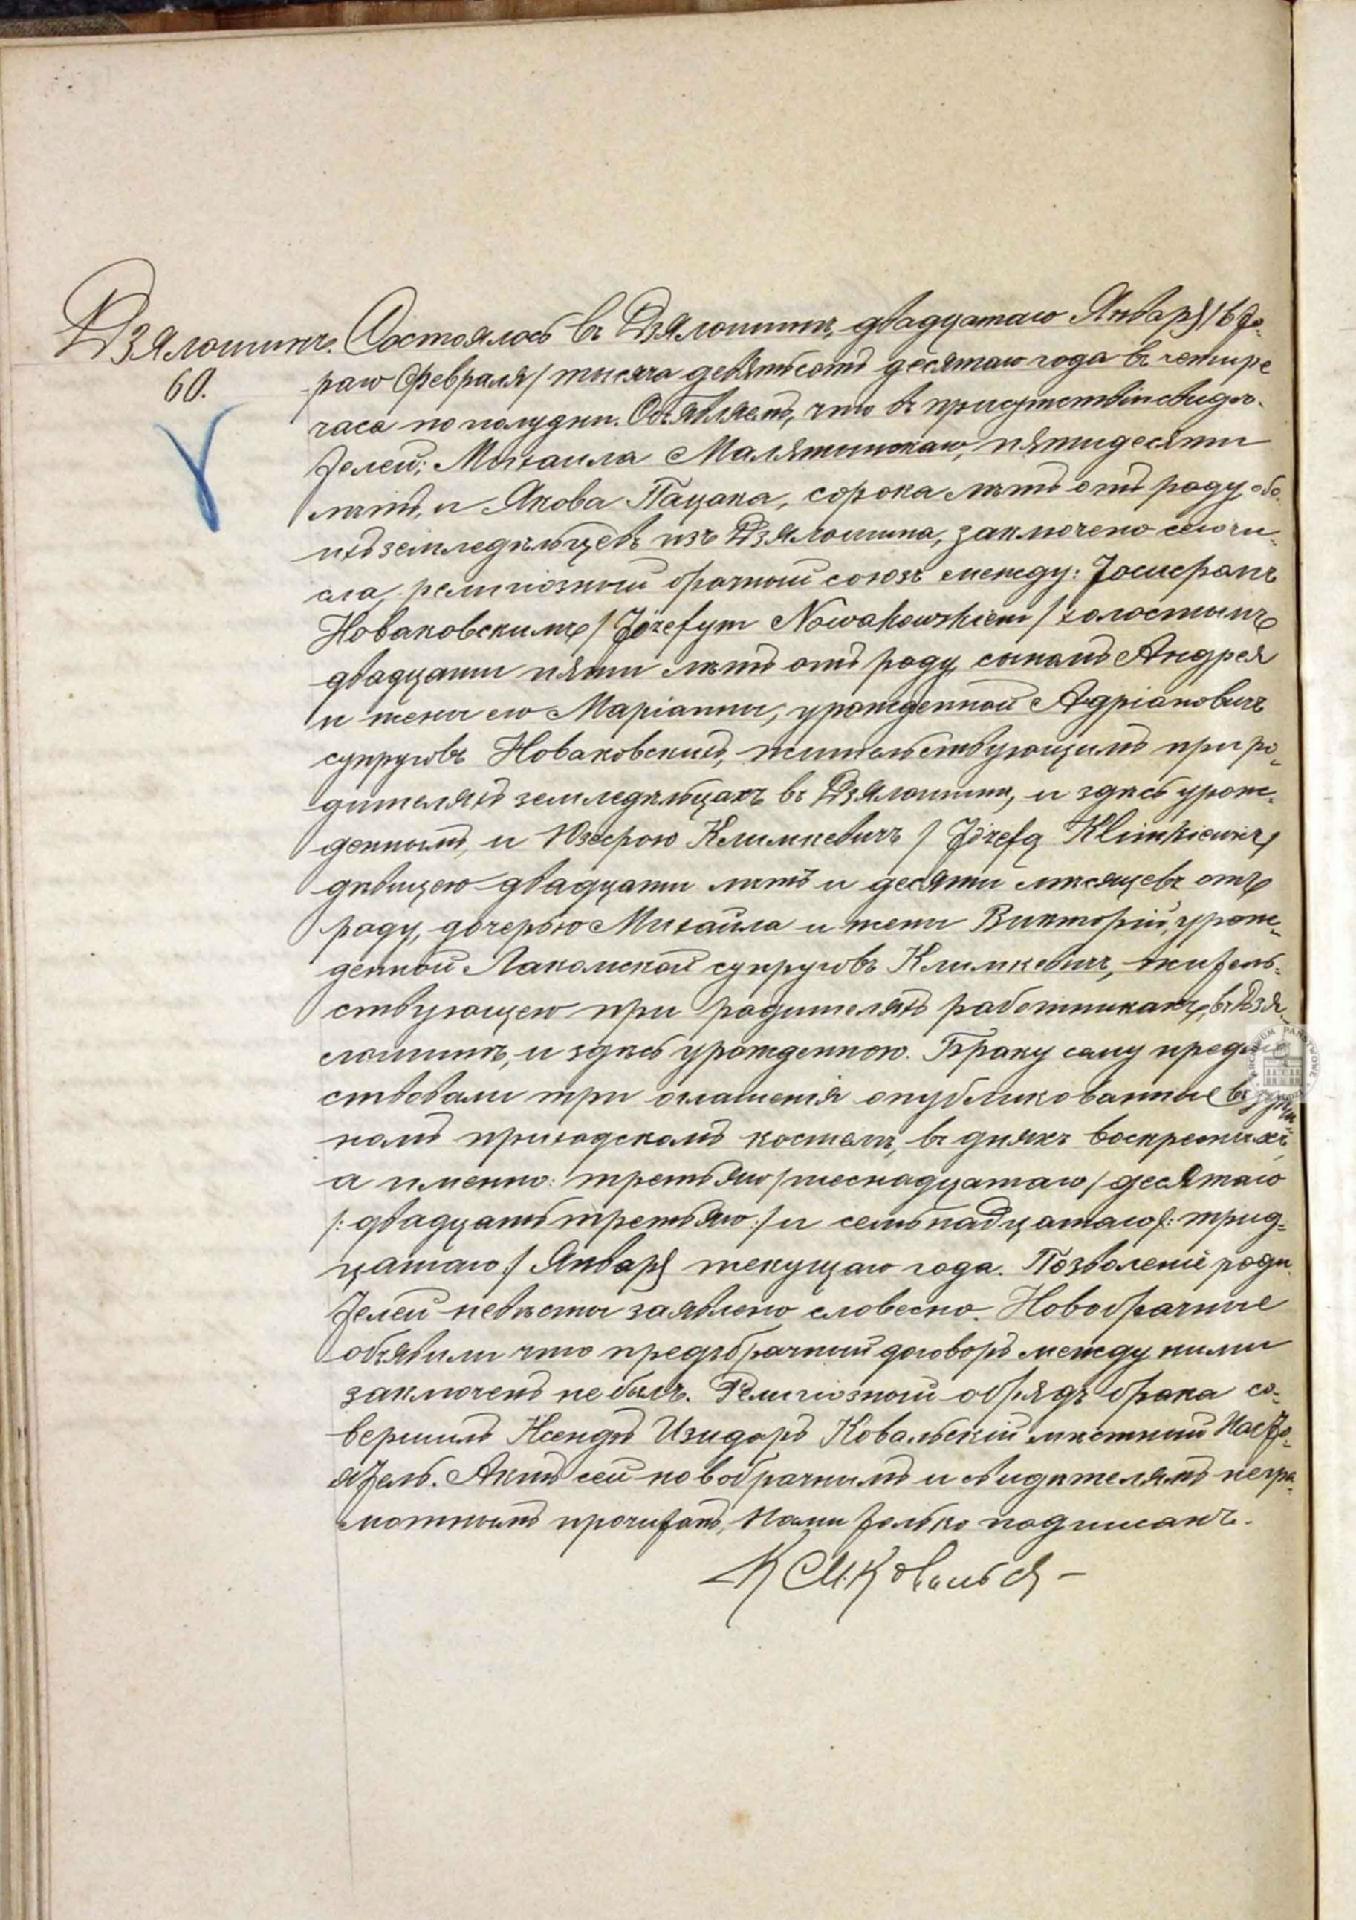 Дзялошинъ. Состоялось въ Дзялошинѣ, двадцатаго Января / вто-
60.
раго Февраля / тысяча девятьсотъ десятаго года въ четыре
часа по полудни. Объявляемъ, что въ присутствіи свидѣ-
телей: Михаила Малятынскаго, пятидесяти
лѣтъ, и Якова Пацана, сорока лѣтъ отъ роду, обо-
ихъ земледѣльцевъ изъ Дзялошина, заключено сего чи-
сла, религіозный брачный союзъ между: Іосифомъ
Новаковскимъ / Józefym Nowakowskiem / холостымъ
двадцати пяти лѣтъ отъ роду, сыномъ Андрея
и жены его Маріанны, урожденной Адріановичъ
супруговъ Новаковскихъ, жительствующимъ при ро-
дителяхъ земледѣльцахъ въ Дзялошинѣ, и здѣсь урож-
деннымъ, и Юзефою Климкевичъ / Józefą Klimkiewicz /
дѣвицею двадцати лѣтъ и десяти мѣсяцевъ отъ
роду, дочерью Михаила и жены Викторіи, урож-
денной Лакомской супруговъ Климкевичъ, житель-
ствующею при родителяхъ работникахъ, въ Дзя-
лошинѣ, и здѣсь урожденною. Браку сему предше-
ствовали три оглашенія опубликованные въ здѣш-
номъ приходскомъ костелѣ, въ дняхъ воскресныхъ,
а именно: третьяго / шеснадцатаго / десятаго
/: двадцать третьяго :/ и семьнадцатаго /: трид-
цатаго :/ Января текущаго года. Позволеніе роди-
телей невѣсты заявлено словесно. Новобрачные
объявили что предъбрачный договоръ между ними
заключенъ не былъ. Религіозный обрядъ брака со-
вершилъ Ксендзъ Изидоръ Ковальскій мѣстный Насто-
ятель. Актъ сей новобрачнымъ и свидѣтелямъ негра-
мотнымъ прочитанъ, Нами только подписанъ.